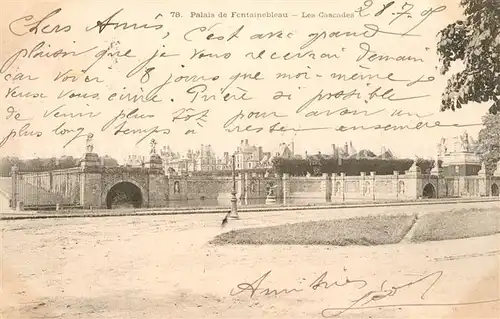 78. Palais de Fontainebleau — Les Cascades
28.7.05
Chers Amis, c'est avec grand
plaisir que je vous recevrai demain
car voici 8 jours que moi-même je
veux vous écrire. Prière si possible
de venir plus tôt pour avoir
plus longtemps à rester ensemble
Amitiés